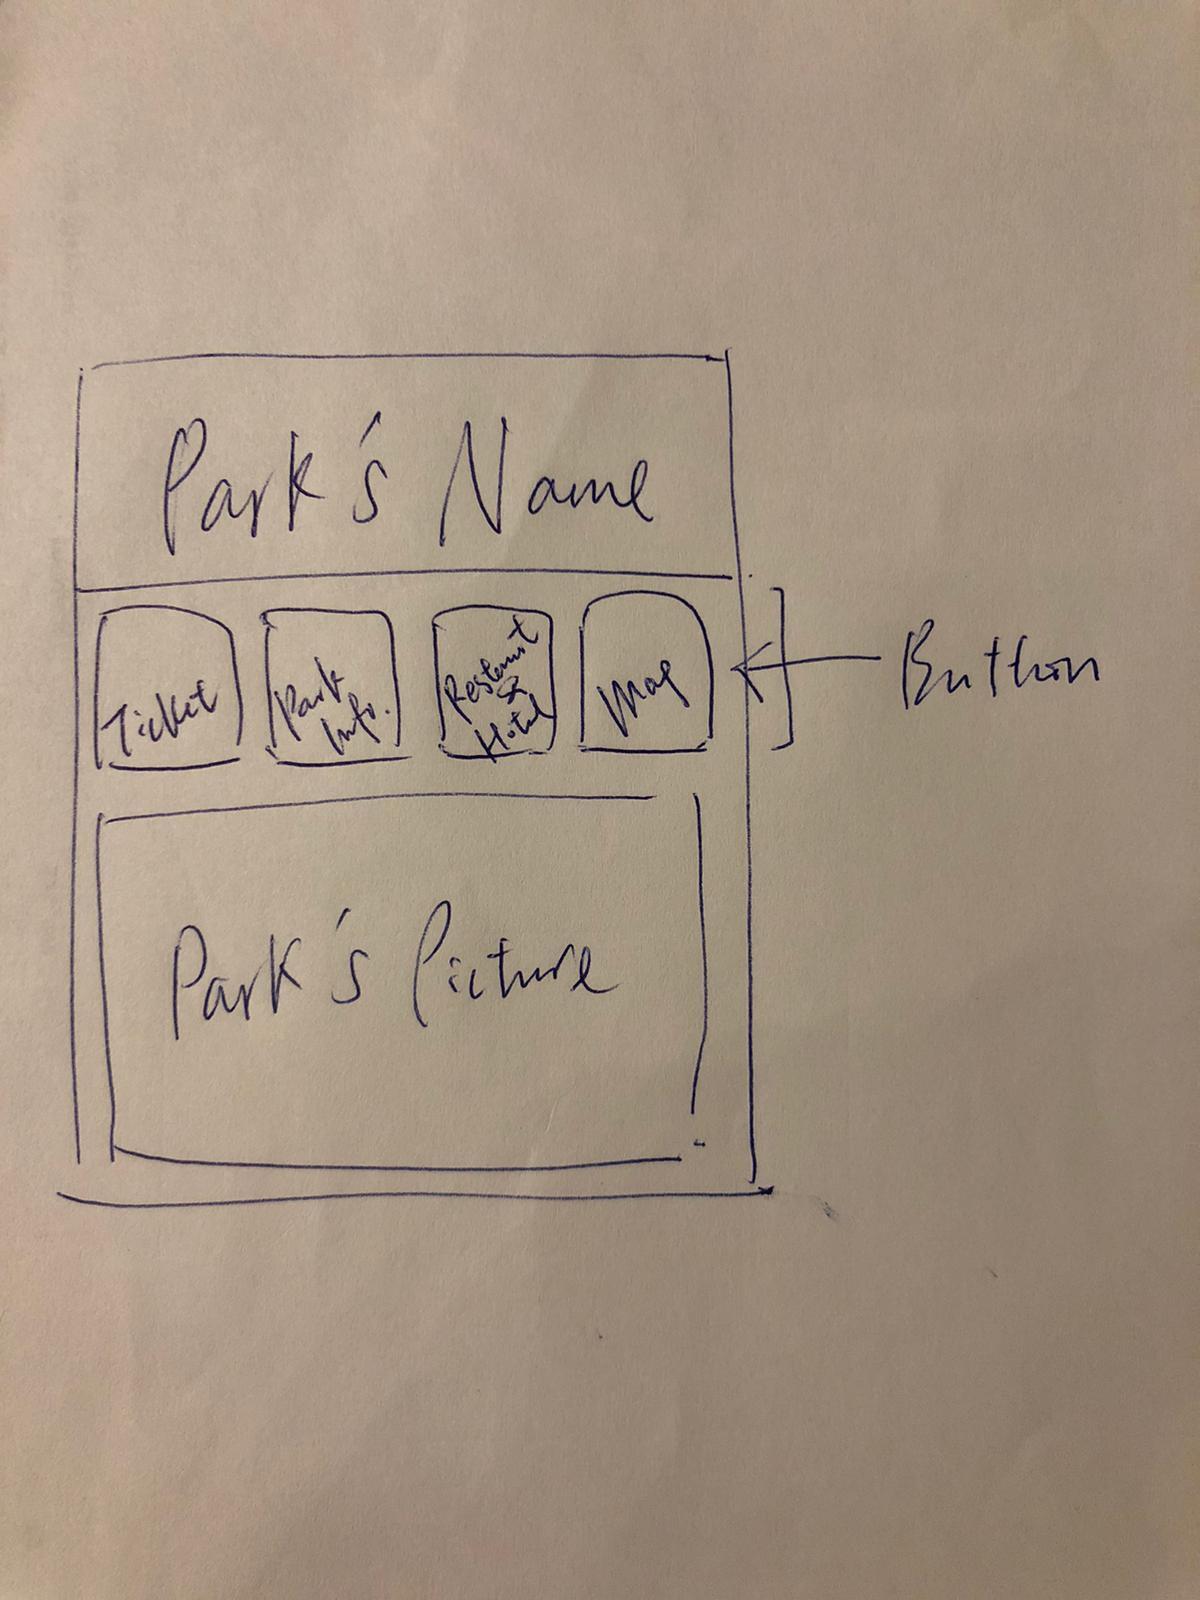 Park's Name
Ticket
Park
Info.
&
Hotel
Map
Button
Park's Picture